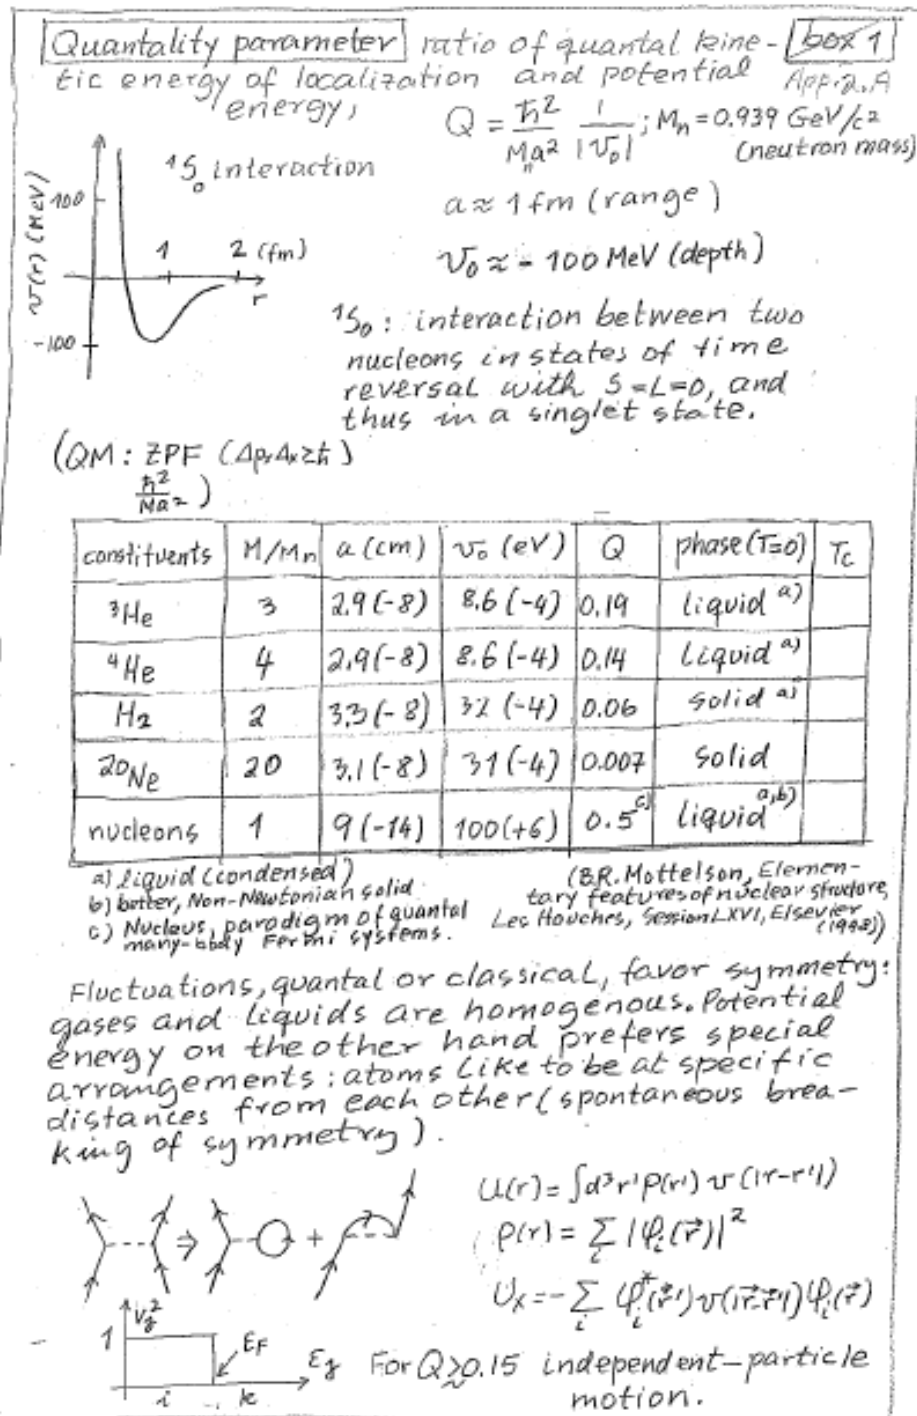 Quantality parameter ratio of quantal kine- box 1
tic energy of localization and potential App. 2.A
energy,
Q = ħ²/(Mₙa²) 1/|v₀| ; Mₙ = 0.939 GeV/c²
(neutron mass)
¹S₀ interaction
a ≈ 1 fm (range)
v₀ ≈ - 100 MeV (depth)
v(r) (MeV)
100
1 2 (fm)
r
-100
¹S₀ : interaction between two
nucleons in states of time
reversal with S=L=0, and
thus in a singlet state.
(QM : ZPF (ΔpₓΔx≥ħ)
ħ²/Ma² )
constituents M/Mₙ a (cm) v₀ (eV) Q phase (T=0) Tc
³He 3 2.9 (-8) 8.6 (-4) 0.19 liquid a)
⁴He 4 2.9 (-8) 8.6 (-4) 0.14 liquid a)
H₂ 2 3.3 (-8) 32 (-4) 0.06 solid a)
²⁰Ne 20 3.1 (-8) 31 (-4) 0.007 solid
nucleons 1 9 (-14) 100 (+6) 0.5 c) liquid a,b)
a) liquid (condensed)
b) better, Non-Newtonian solid
c) Nucleus, paradigm of quantal
many-body Fermi systems.
(B.R. Mottelson, Elemen-
tary features of nuclear structure,
Les Houches, Session LXVI, Elsevier
(1998))
Fluctuations, quantal or classical, favor symmetry:
gases and liquids are homogenous. Potential
energy on the other hand prefers special
arrangements : atoms like to be at specific
distances from each other (spontaneous brea-
king of symmetry).
⇒ +
U(r) = ∫d³r' ρ(r') v (|r-r'|)
ρ(r) = Σᵢ |φᵢ(r⃗)|²
Uₓ = - Σᵢ φᵢ*(r⃗') v(|r⃗-r⃗'|) φᵢ(r⃗)
1
E_F
i k
For Q ≳ 0.15 independent-particle
motion.